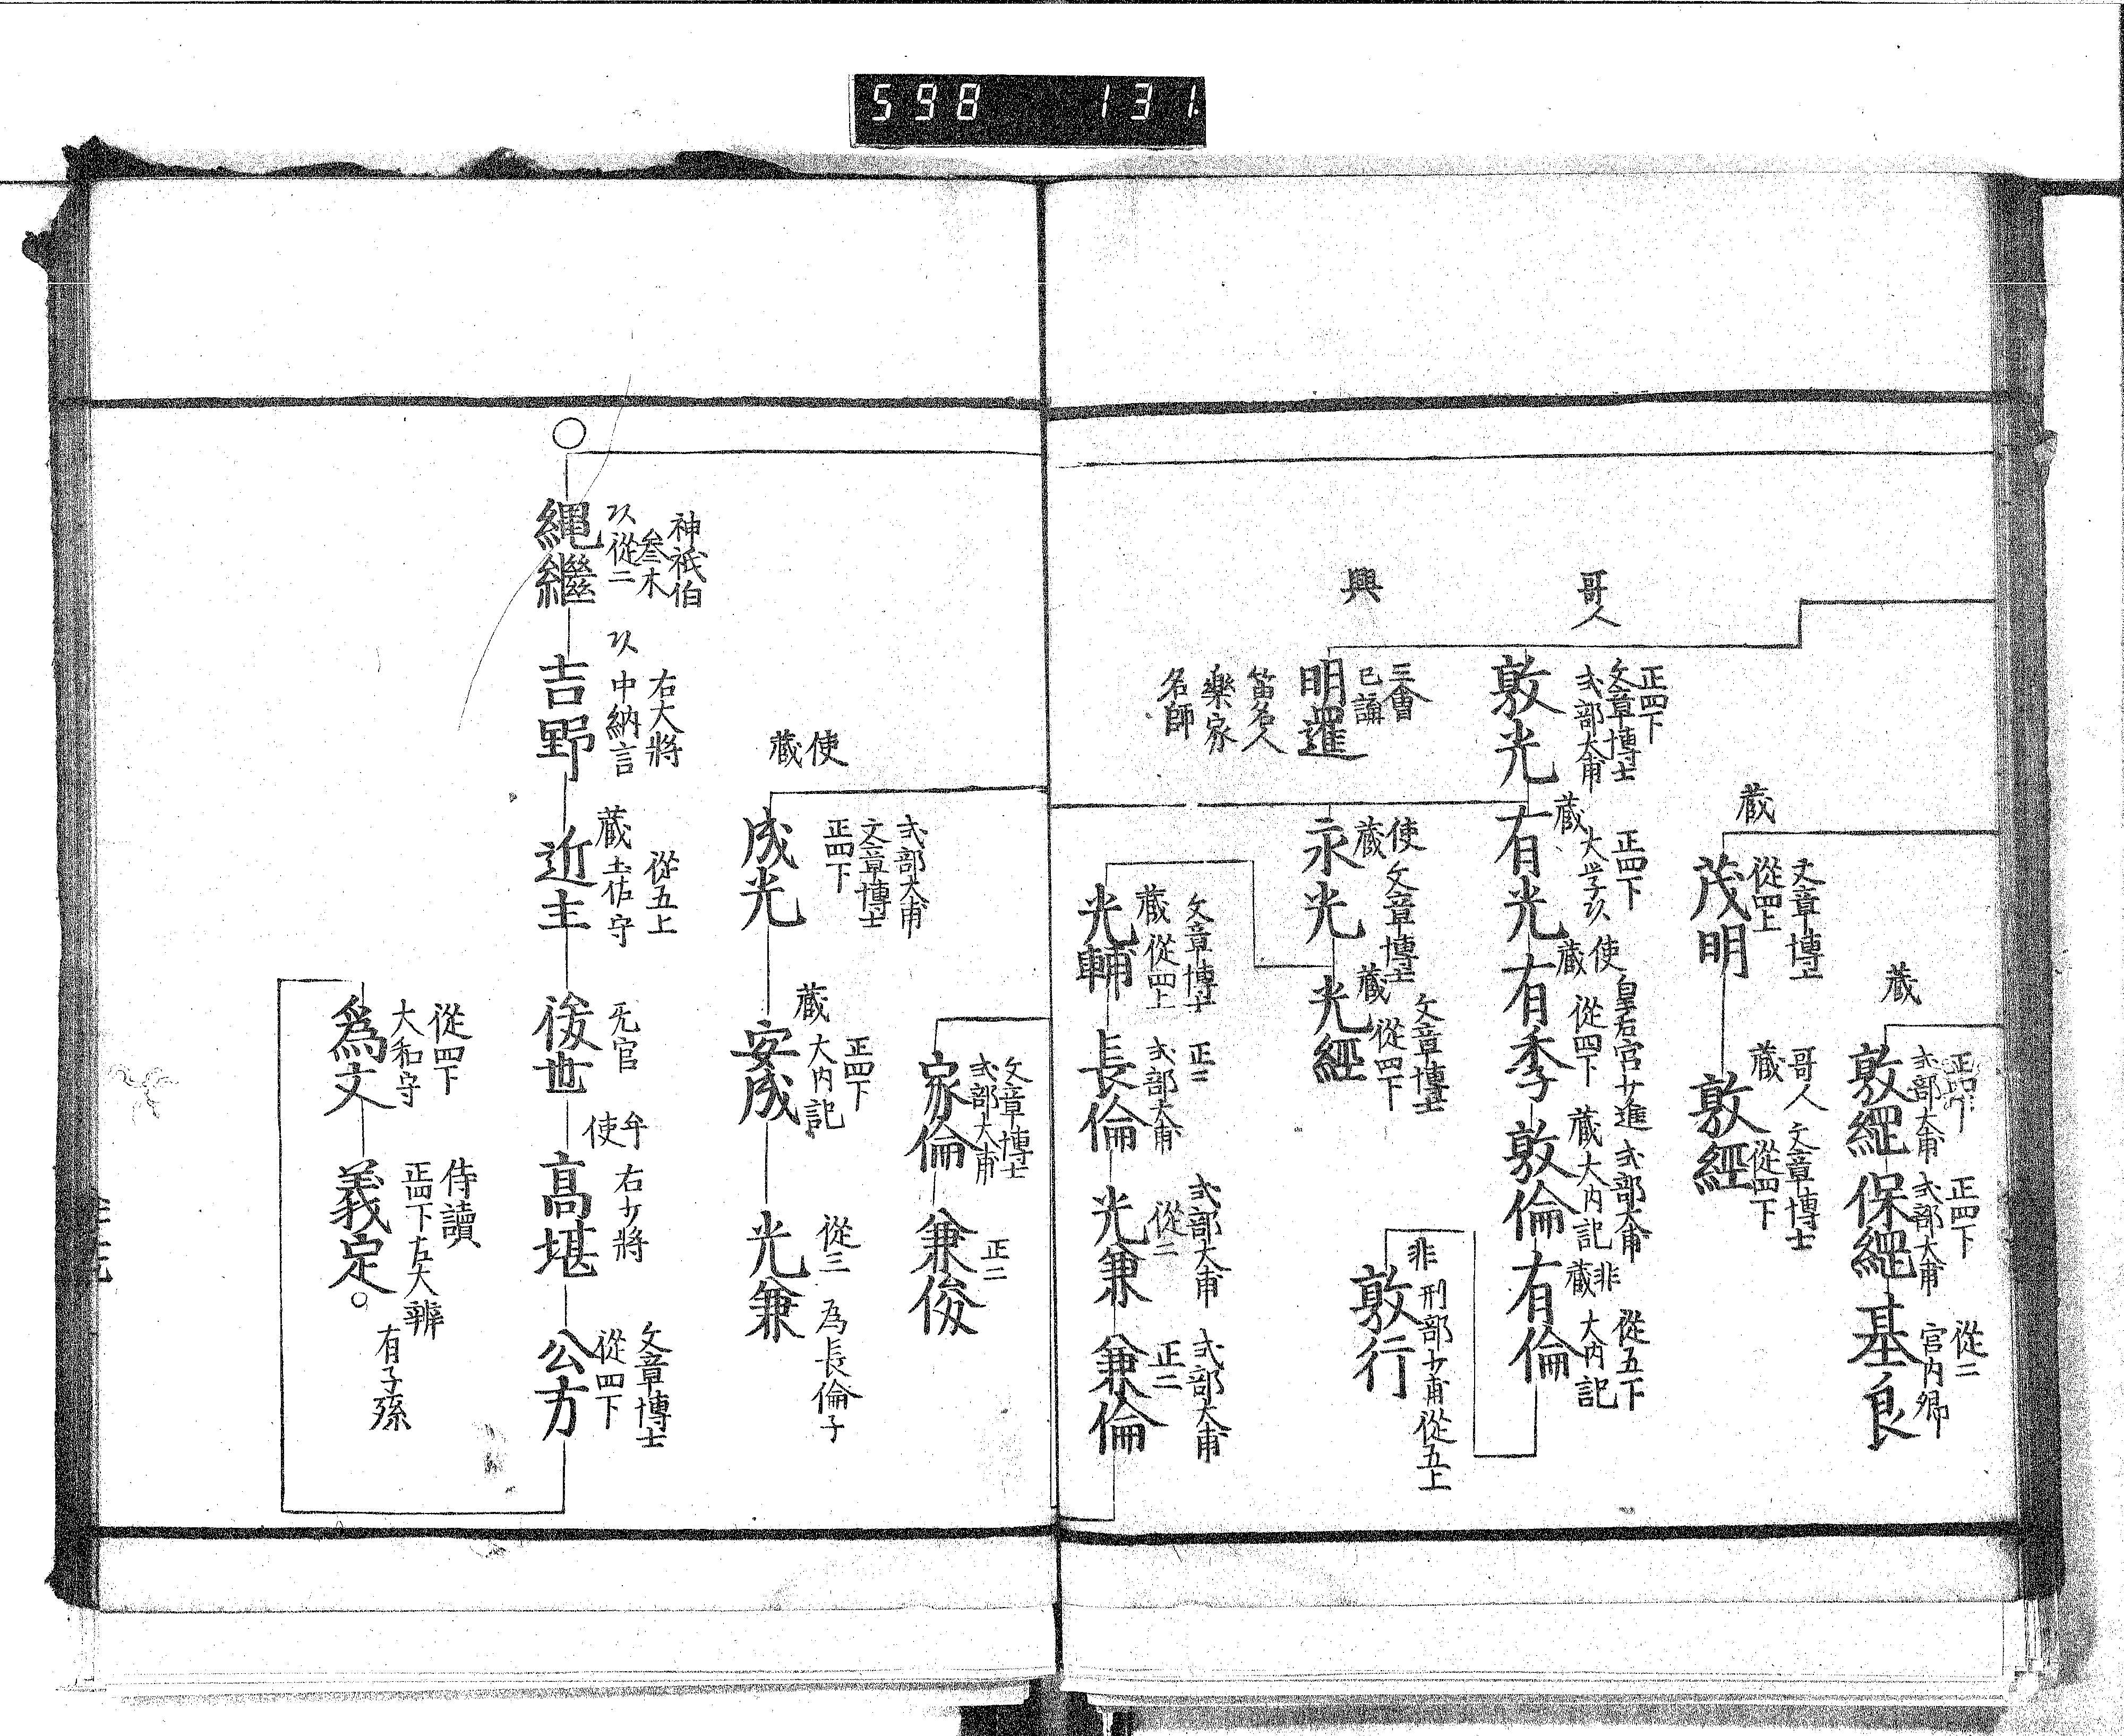 598 131
蔵
敦綱
正四下
式部大甫
保綱
正四下
式部大甫
基良
従二
宮内卿
蔵
茂明
文章博士
従四上
敦経
哥人
蔵
文章博士
従四下
哥人
敦光
正四下
文章博士
式部大甫
有光
蔵
正四下
大学
有季
使
蔵
皇后宮少進
従四下
敦倫
式部大甫
蔵
大内記
有倫
非
蔵
従五下
大内記
敦行
非
刑部少甫
従五上
興
明暹
三會
已講
笛名人
樂家
名師
永光
使
蔵
文章博士
光經
蔵
文章博士
従四下
光輔
文章博士
蔵
従四上
長倫
正二
式部大甫
光兼
式部大甫
従二
兼倫
式部大甫
正二
家倫
文章博士
式部大甫
兼俊
正二
使
蔵
成光
式部大甫
文章博士
正四下
安成
蔵
正四下
大内記
光兼
従三
為長倫子
○
縄継
神祇伯
参木
従二
吉野
右大将
中納言
近主
蔵
従五上
土佐守
後世
无官
高堪
使
右少将
公方
文章博士
従四下
為文
従四下
大和守
義定
侍讀
正四下
右大辨
有子孫